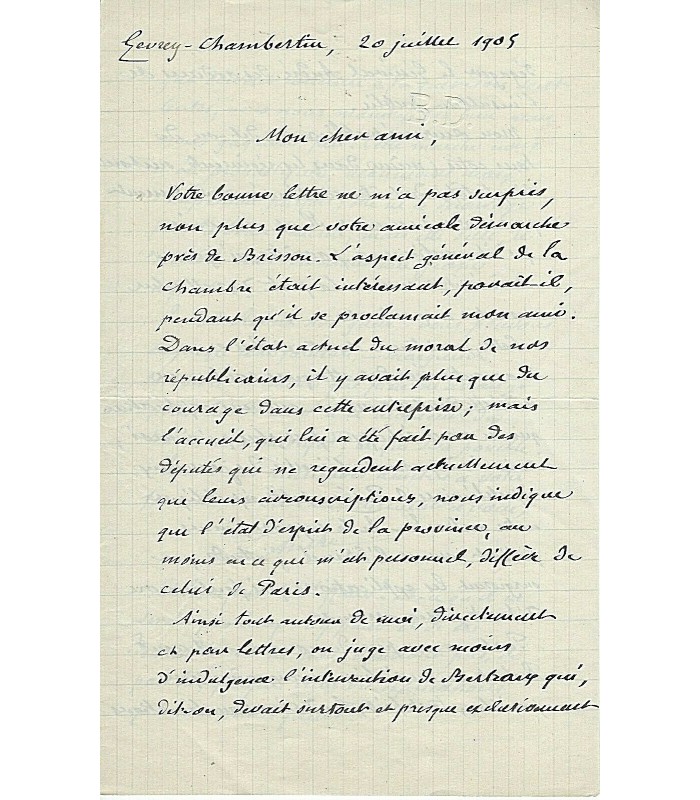 Gevrey-Chambertin, 20 juillet 1905
Mon cher ami,
Votre bonne lettre ne m'a pas surpris,
non plus que votre amicale démarche
près de Brisson. L'aspect général de la
Chambre était intéressant, parait il,
pendant qu'il se proclamait mon ami.
Dans l'état actuel du moral de nos
républicains, il y avait plus que du
courage dans cette entreprise; mais
l'accueil, qui lui a été fait par des
députés qui ne regardent actuellement
que leurs circonscriptions, nous indique
que l'état d'esprit de la province, au
moins en ce qui m'est personnel, diffère de
celui de Paris.
Ainsi tout autour de moi, directement
et par lettres, on juge avec moins
d'indulgence l'intervention de Berteaux qui,
dit-on, devait surtout et presque exclusivement